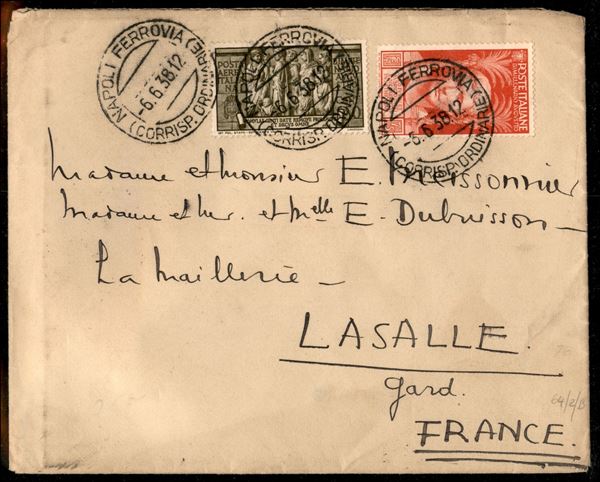 NAPOLI FERROVIA (CORRISP. ORDINARIE)
-6.6.38.12
NAPOLI FERROVIA (CORRISP. ORDINARIE)
-6.6.38.12
NAPOLI FERROVIA (CORRISP. ORDINARIE)
-6.6.38.12
POSTE
AEREA
POSTE ITALIANE
BIMILLENARIO AUGUSTEO
Madame et Monsieur E. Meissonnier
Madame et Mr. et Melle E. Dubuisson -
La Maillerie -
LASALLE.
Gard.
FRANCE.